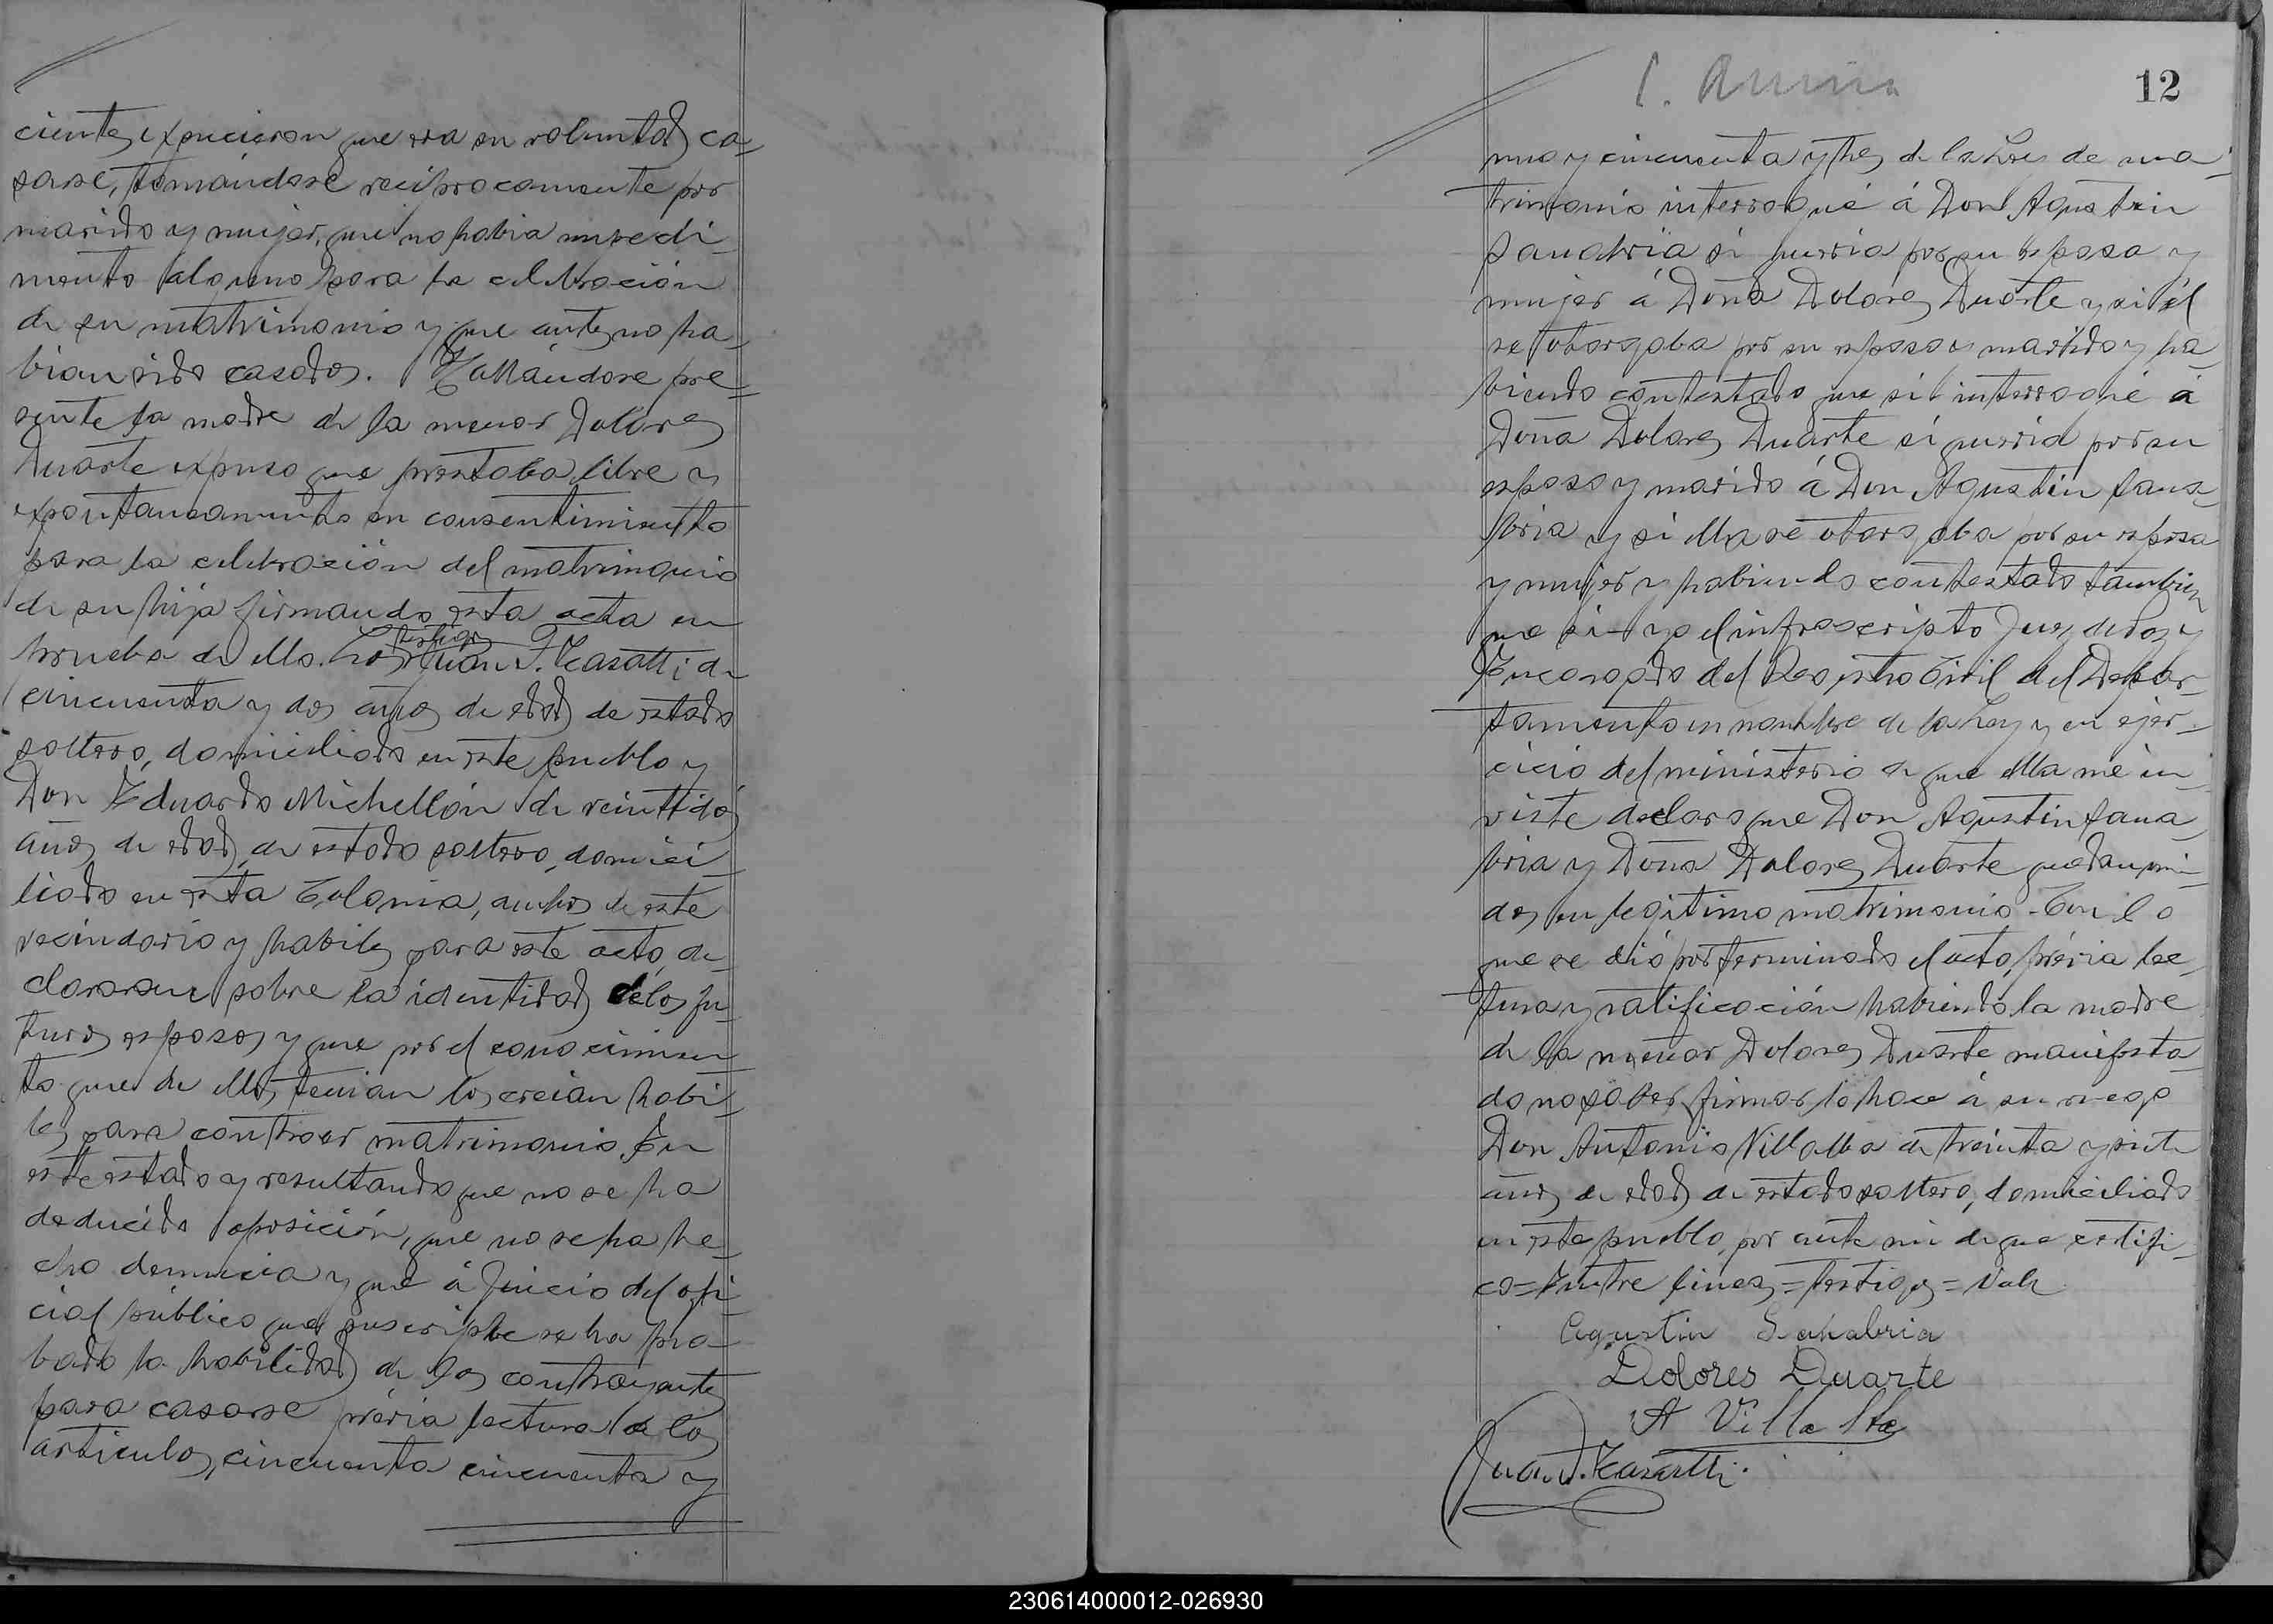 cientes expucieron que era su voluntad ca-
sarse, tomándose reciprocamente por
marido y mujer, que no habia impedi-
mento alguno para la celebración
de su matrimonio y que antes no ha-
bian sido casados. Hallándose pre-
sente la madre de la menor Dolores
Duarte expuso que prestaba libre y
expontaneamente su consentimiento
para la celebración del matrimonio
de su hija firmando esta acta en
testigos
prueba de ello. Los Juan J. Casatti de
cincuenta y dos años de edad de estado
soltero, domiciliado en este pueblo y
Don Eduardo Michellón de veintidós
años de edad, de estado soltero, domici-
liado en esta Colonia, ambos de este
vecindario y habiles para este acto, de-
clararon sobre la identidad de los fu-
turos esposos y que por el conocimien-
to que de ellos tenian los creian habi-
les para contraer matrimonio. En
este estado y resultando que no se ha
deducido oposición, que no se ha he-
cho denuncia y que á juicio del ofi-
cial público que suscribe se ha pro-
bado la habilidad de los contrayentes
para casarse prévia lectura de los
articulos, cincuenta cincuenta y
12
uno y cincuenta y tres de la Ley de ma-
trimonio interrogué á Don Agustin
Sanabria si queria por su esposa y
mujer á Doña Dolores Duarte y si él
se otorgaba por su esposo y marido y ha-
biendo contestado que si interrogué á
Doña Dolores Duarte si queria por su
esposo y marido á Don Agustin Sana-
bria y si ella se otorgaba por su esposa
y mujer y habiendo contestado tambien
que si - yo el infrascripto Juez de Paz y
Encargado del Registro Civil del Depar-
tamento en nombre de la Ley y en ejer-
cicio del ministerio de que ella me in-
viste declaro que Don Agustin Sana-
bria y Doña Dolores Duarte quedan uni-
dos en legitimo matrimonio - Con lo
que se dió por terminado el acto, prévia lec-
tura y ratificación habiendo la madre
de la menor Dolores Duarte manifesta-
do no saber firmar lo hace á su ruego
Don Antonio Villalba de treinta y siete
años de edad de estado soltero, domiciliado
en este pueblo, por ante mi de que certifi-
co = Entre lineas = testigos = Vale
Agustin Sanabria
Dolores Duarte
A Villalba
Juan J. Casatti.
230614000012-026930